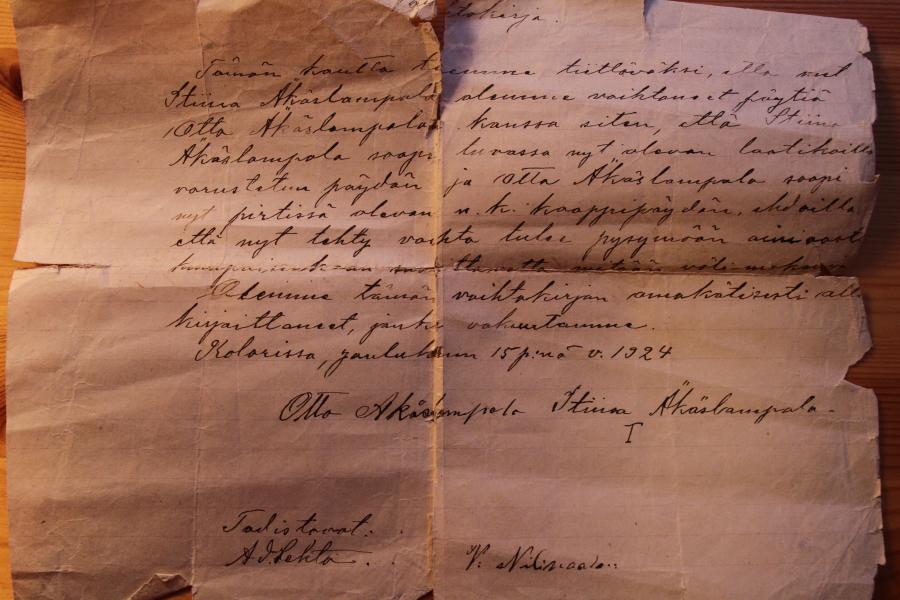 tokirja.
Tämän kautta teemme tiettäväksi, että
Stiina Äkäslampala olemme vaihtaneet pöytiä
Otto Äkäslampalan kanssa siten, että Stiina
Äkäslampola saapi tuvassa nyt olevan laatikoilla
varustetun pöydän ja Otto Äkäslampalo saapi
nyt pirtissä olevan n.k. kaappipöydän, ehdoilla
että nyt tehty vaihto tulee pysymään ainiaast
Olemme tämän vaihtokirjan omakätisesti all
kirjoittaneet, jonka vakuutamme.
Kolarissa, joulukuun 15 p:nä v. 1924
Otto Äkäslampolo Stiina Äkäslampalo
Todistavat:
V. Nilivaara